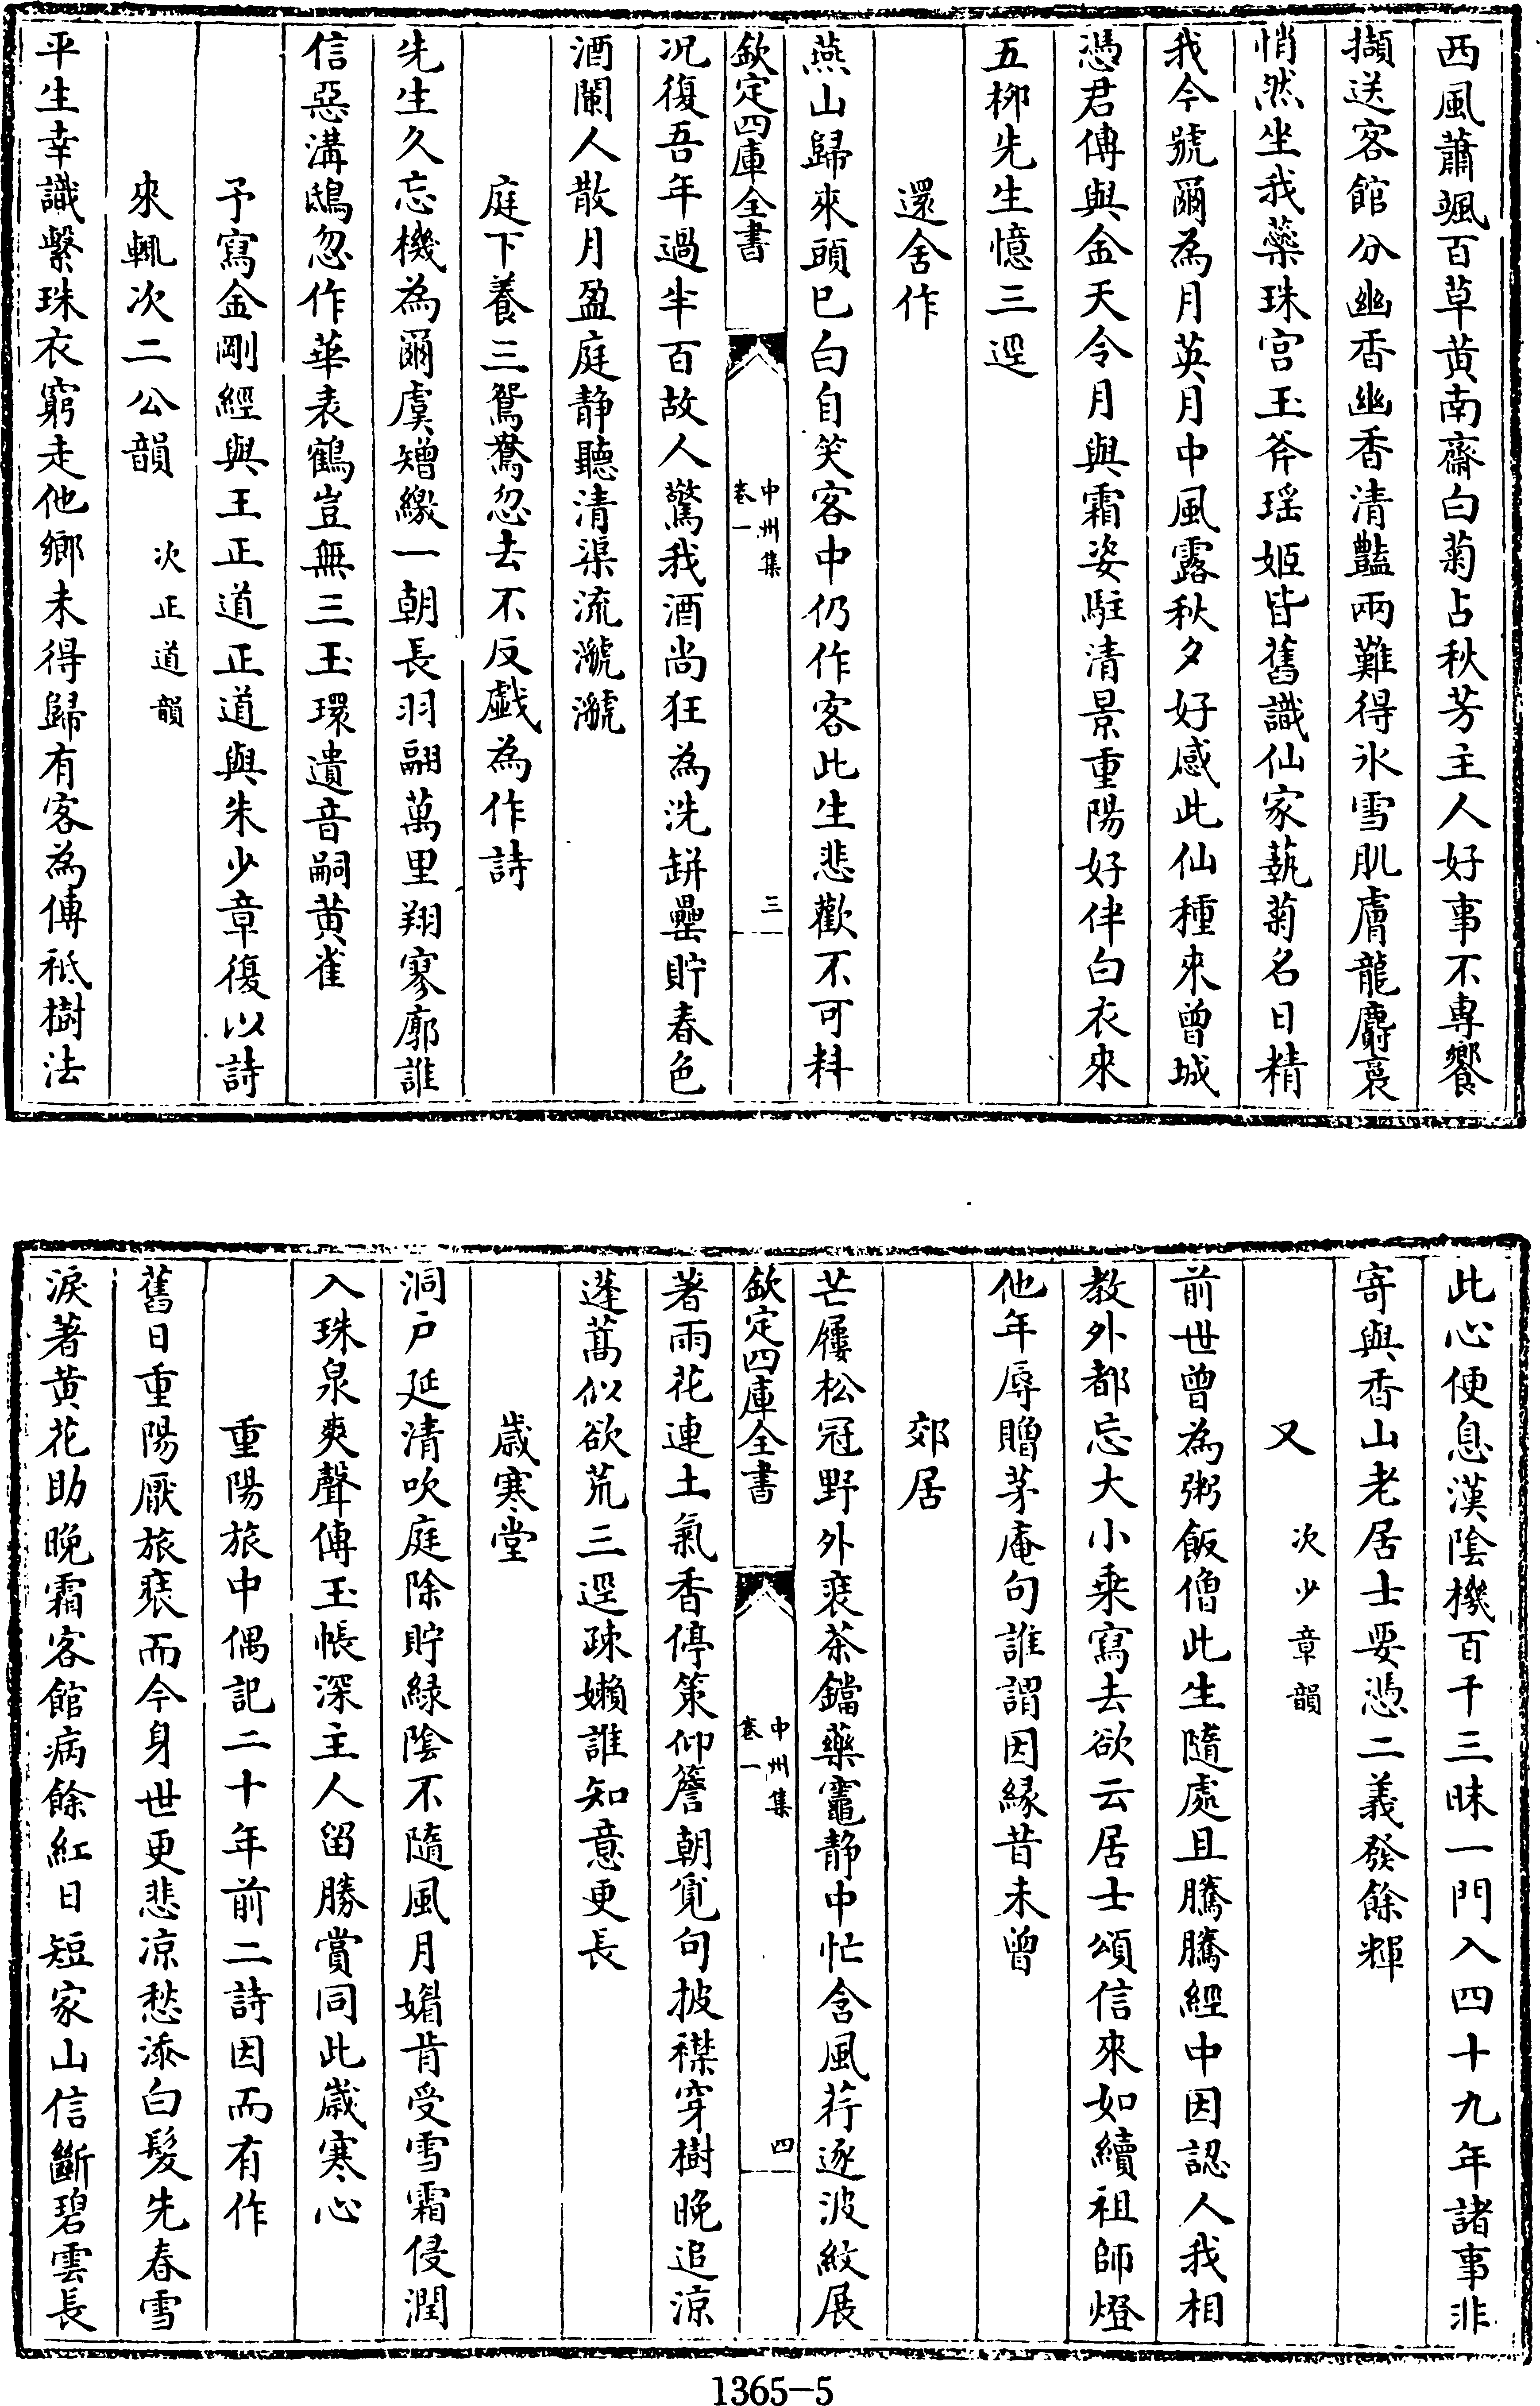 西風蕭颯百草黄南齋白菊占秋芳主人好事不專饗
擷送客館分幽香幽香清豔兩難得氷雪肌膚龍麝裛
悄然坐我蘂珠宫玉斧瑶姬皆舊識仙家蓺菊名日精
我今號爾為月英月中風露秋夕好感此仙種來曾城
憑君傳與金天令月與霜姿駐清景重陽好伴白衣來
五栁先生憶三逕
還舍作
燕山歸來頭已白自笑客中仍作客此生悲歡不可料
欽定四庫全書
中州集
卷一
三
况復吾年過半百故人驚我酒尚狂為洗缾罍貯春色
酒闌人散月盈庭静聽清渠流㶁㶁
庭下養三鴛鴦忽去不反戯為作詩
先生久忘機為爾虞矰繳一朝長羽翮萬里翔寥廓誰
信惡溝鴟忽作華表鶴豈無三玉環遺音嗣黄雀
予寫金剛經與王正道正道與朱少章復以詩
來輒次二公韻
次正道韻
平生幸識繫珠衣窮走他鄉未得歸有客為傳祇樹法
此心便息漢隂機百千三昧一門入四十九年諸事非
寄與香山老居士要憑二義發餘輝
又
次少章韻
前世曾為粥飯僧此生隨處且騰騰經中因認人我相
教外都忘大小乗寫去欲云居士頌信來如續祖師燈
他年辱贈茅庵句誰謂因縁昔未曾
郊居
芒屨松冠野外裘茶鐺藥竈静中忙含風荇逐波紋展
欽定四庫全書
中州集
卷一
四
著雨花連土氣香停策仰簷朝覓句披襟穿樹晚追涼
蓬蒿似欲荒三逕疎嬾誰知意更長
歲寒堂
洞户延清吹庭除貯緑隂不隨風月媚肯受雪霜侵潤
入珠泉爽聲傳玉帳深主人留勝賞同此歲寒心
重陽旅中偶記二十年前二詩因而有作
舊日重陽厭旅裘而今身世更悲凉愁添白髮先春雪
淚著黄花助晚霜客館病餘紅日短家山信斷碧雲長
1365-5